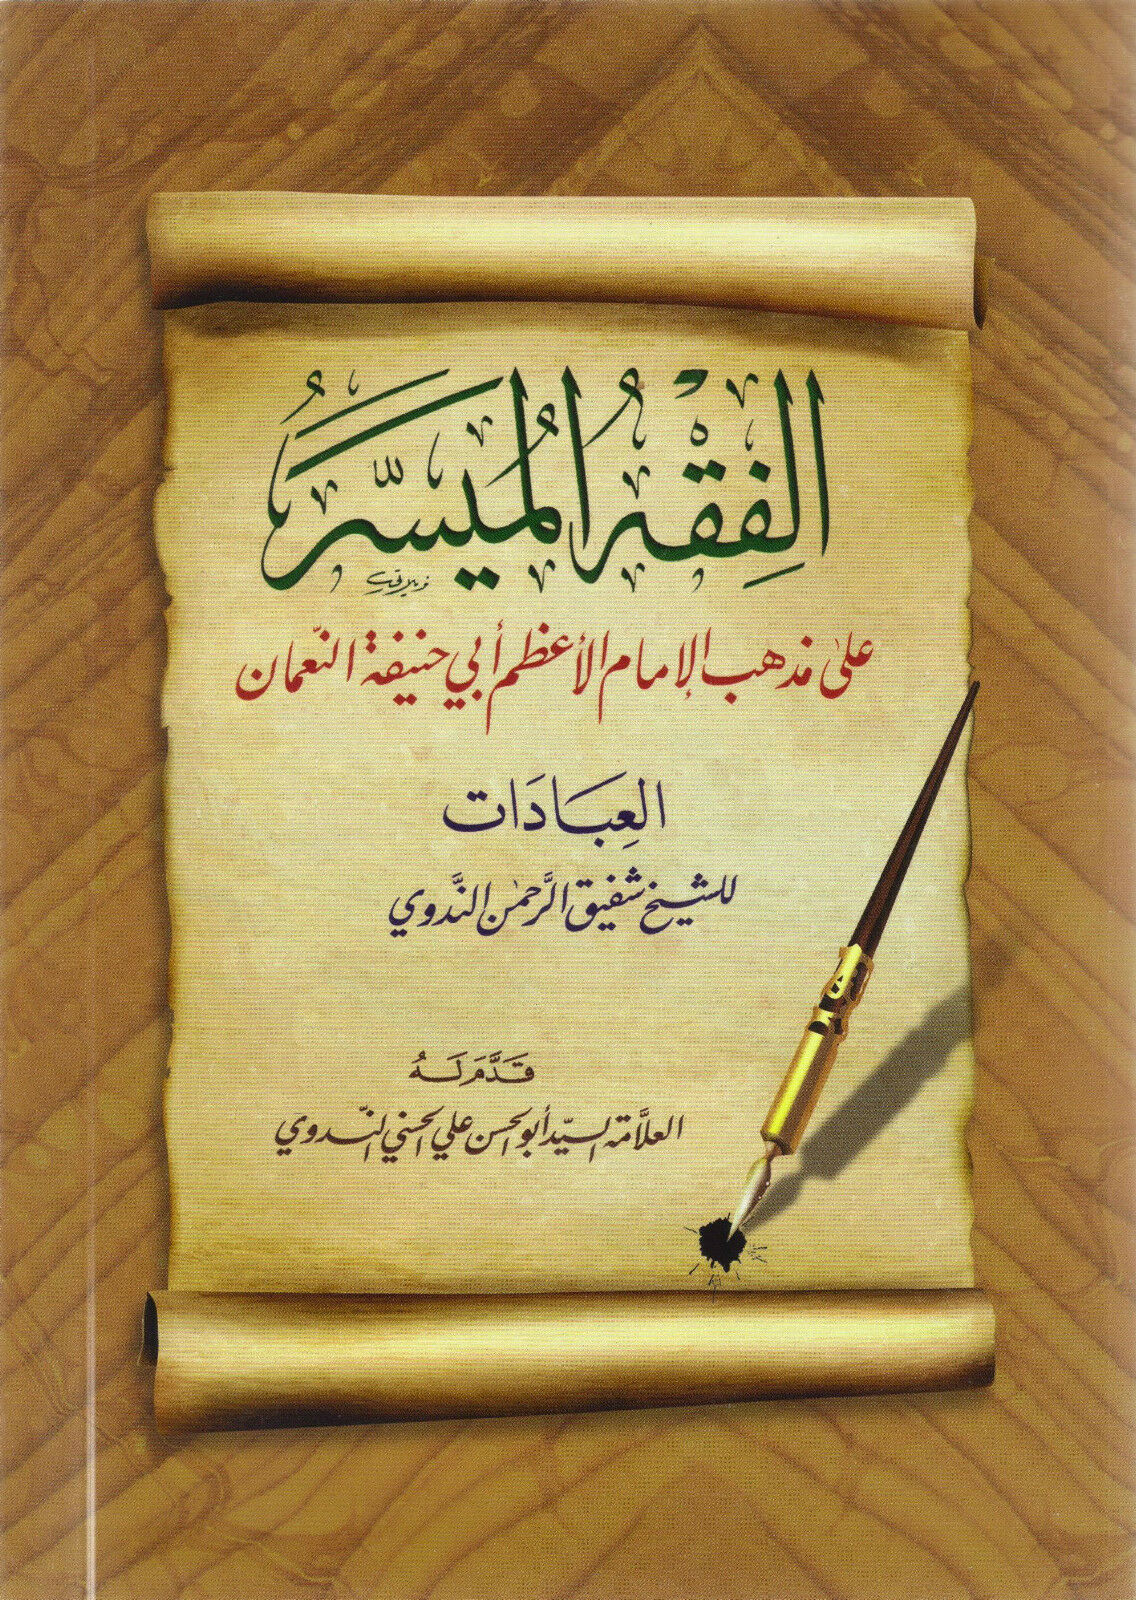 الفِقْهُ المُيَسَّرُ
على مذهب الإمام الأعظم أبي حنيفة النّعمان
العِبَادَات
للشيخ شفيق الرَّحمٰن النَّدوي
قَدَّمَ لَهُ
العلاَّمة السيّد أبو الحسن علي الحسني النّدوي